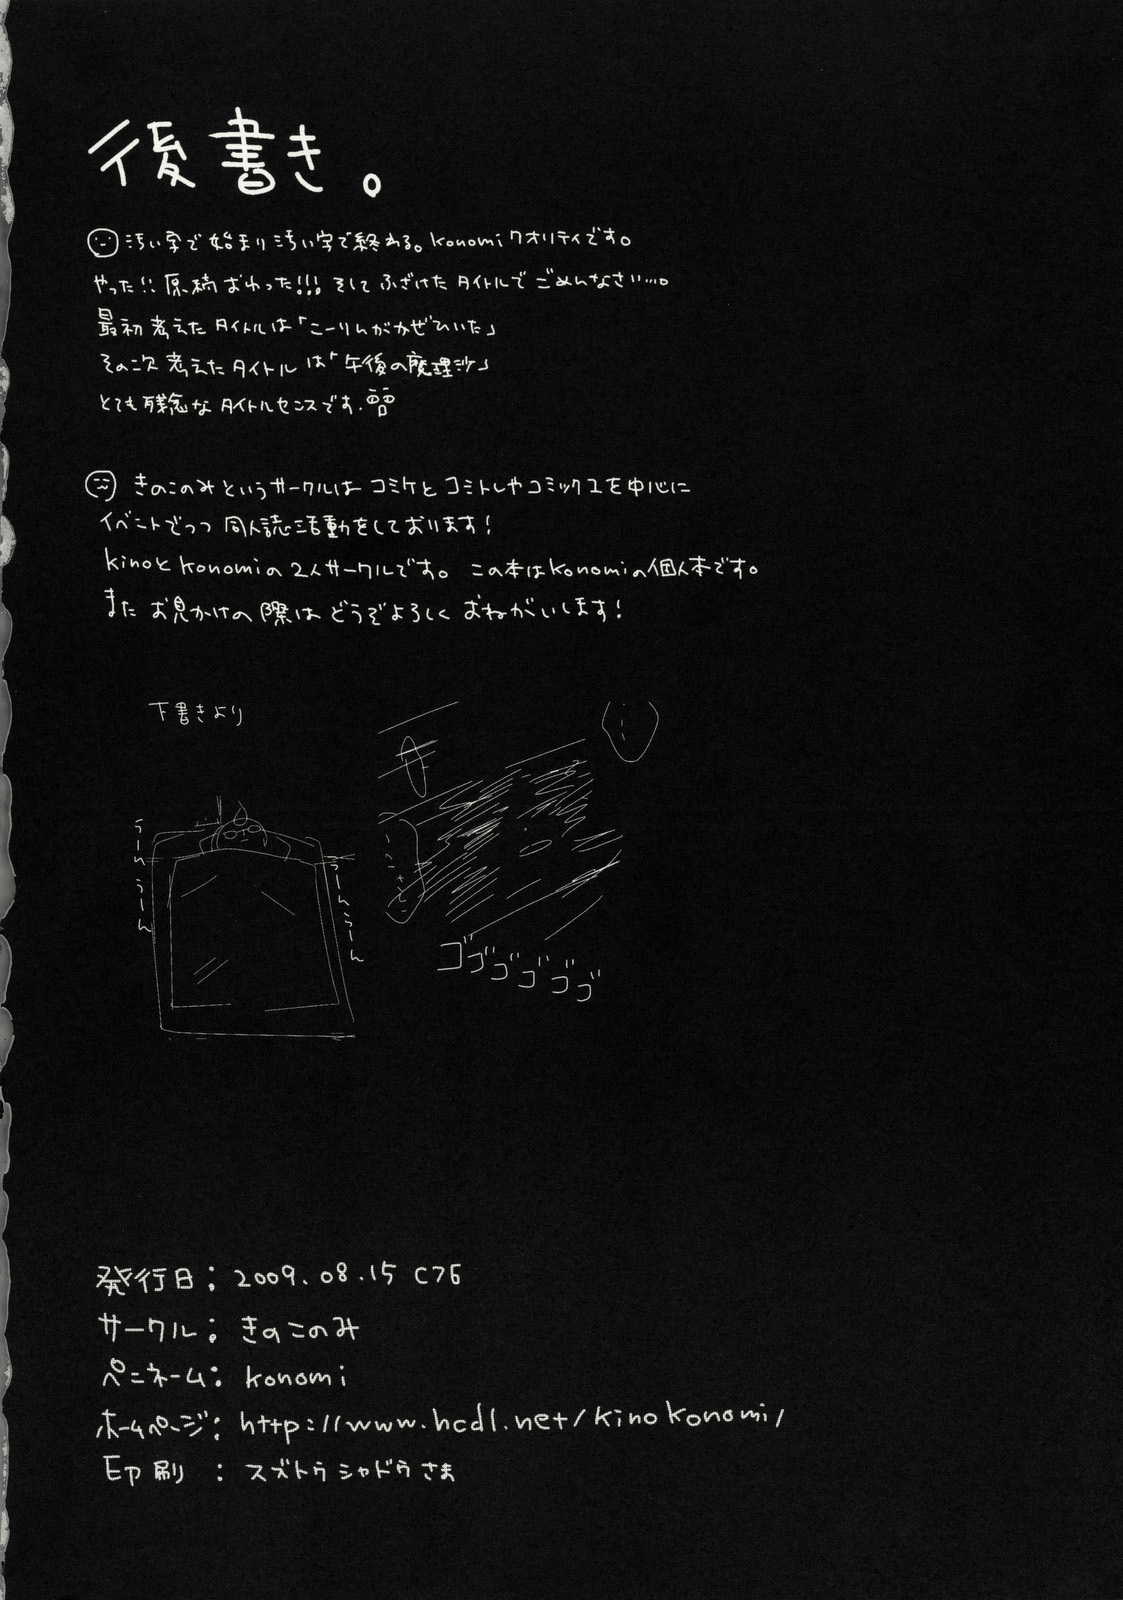 後書き。
汚い字で始まり汚い字で終わる。konomiクオリティです。
やった!!原稿おわった!!!そしてふざけたタイトルでごめんなさい…。
最初考えたタイトルは「こーりんがかぜひいた」
その次考えたタイトルは「午後の魔理沙」
とても残念なタイトルセンスです。
きのこのみというサークルはコミケとコミトレやコミック1を中心に
イベントでつつ同人誌活動をしております!
kinoとkonomiの2人サークルです。この本はkonomiの個人本です。
またお見かけの際はどうぞよろしくおねがいします!
下書きより
うーんうーん
うーんうーん
ゴゴゴゴゴゴ
発行日:2009.08.15 C76
サークル:きのこのみ
ペンネーム:konomi
ホームページ:http://www.hcdl.net/kinokonomi/
印刷:スズトウシャドウさま